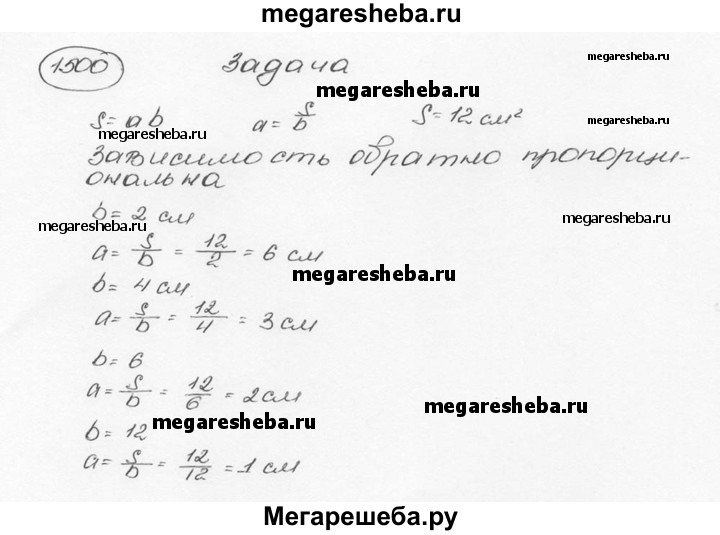 megaresheba.ru
1500 Задача megaresheba.ru
megaresheba.ru
S=ab a=S/b S=12 см² megaresheba.ru
megaresheba.ru
Зависимость обратно пропорци-
ональна
b=2 см megaresheba.ru
megaresheba.ru
a=S/b=12/2=6 см
megaresheba.ru
b=4см
a=S/b=12/4=3см
b=6
a=S/b=12/6=2см
megaresheba.ru
b=12 megaresheba.ru
a=S/b=12/12=1 см
Мегарешеба.ру